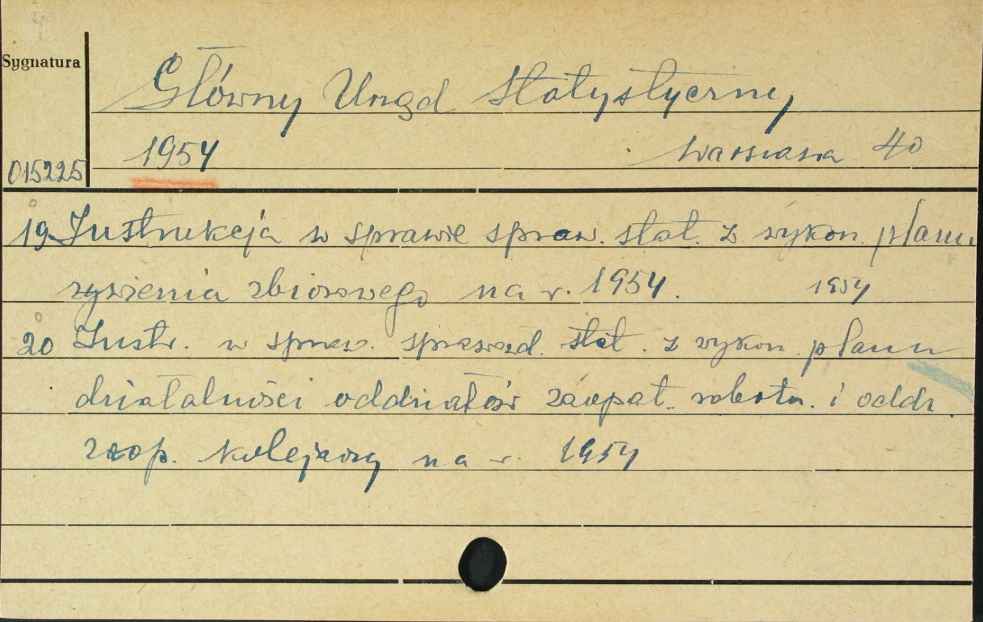 Sygnatura
Główny Urząd Statystyczny
1954 Warszawa 40
015225
19 Instrukcja w sprawie spraw. stat. z wykon. planu
żywienia zbiorowego na r. 1954. 1954
20 Instr. w spraw. sprawozd. stat. z wykon. planu
działalności oddziałów zaopat. robotn. i oddz.
zaop. kolejowy na r. 1954